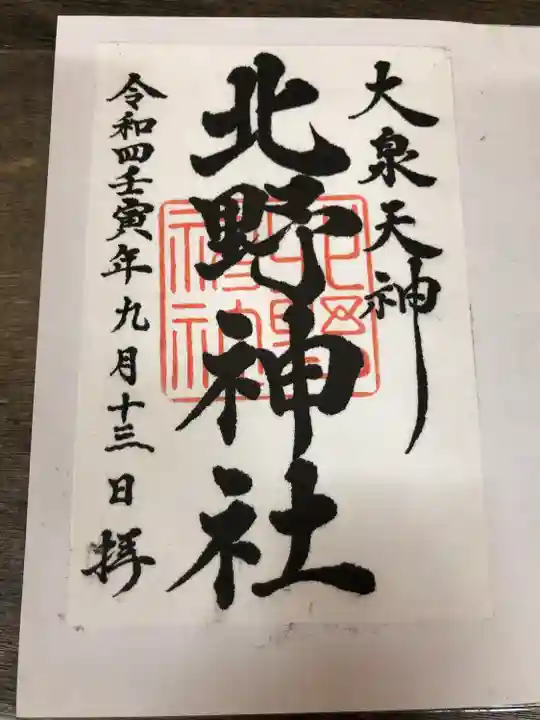 大泉天神
北野神社
令和四壬寅年九月十三日拝
北野
神社